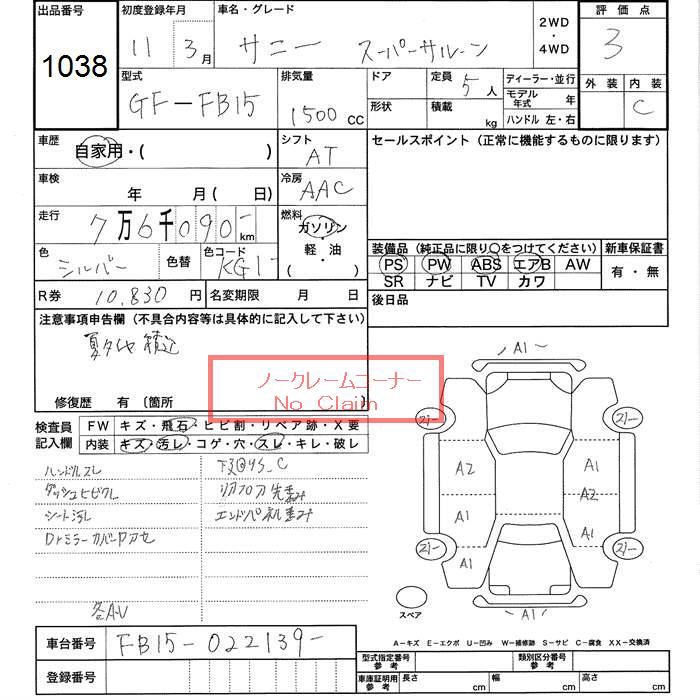 出品番号
1038
初度登録年月
11 3月
車名・グレード
サニー スーパーサルーン
2WD
・
4WD
評価点
3
外装 内装
C
型式
GF-FB15
排気量
1500 cc
ドア
形状
定員 5 人
積載 kg
ディーラー・並行
モデル年式 年
ハンドル 左・右
車歴
自家用・( )
シフト
AT
セールスポイント(正常に機能するものに限ります)
車検
年 月(日)
冷房
AAC
走行
7万6千090- km
燃料
ガソリン
軽・油
( ・ )
色
シルバー
色替
色コード
KG1-
装備品(純正品に限り○をつけてください)
新車保証書
PS PW ABS エアB AW
SR ナビ TV カワ
有・無
R券 10,830 円
名変期限 月 日
後日品
注意事項申告欄(不具合内容等は具体的に記入して下さい)
夏タイヤ積込
ノークレームコーナー
No Claim
修復歴 有(箇所
検査員
記入欄
FW キズ・飛石・ヒビ割・リペア跡・X要
内装 キズ・汚レ・コゲ・穴・スレ・キレ・破レ
ハンドルスレ
ダッシュヒビワレ
シート汚レ
Drミラーカバーワカセ
各A.U
下廻サビ_C
エンドパネル歪み
A1
21-
21-
A2
A1
A2
A1
A1
21-
21-
A1
A1
スペア
A-キズ E-エクボ U-凹み W-補修跡 S-サビ C-腐食 XX-交換済
車台番号
FB15-022139-
登録番号
型式指定番号
参考
類別区分番号
参考
車庫証明用
参考
長さ cm
幅 cm
高さ cm